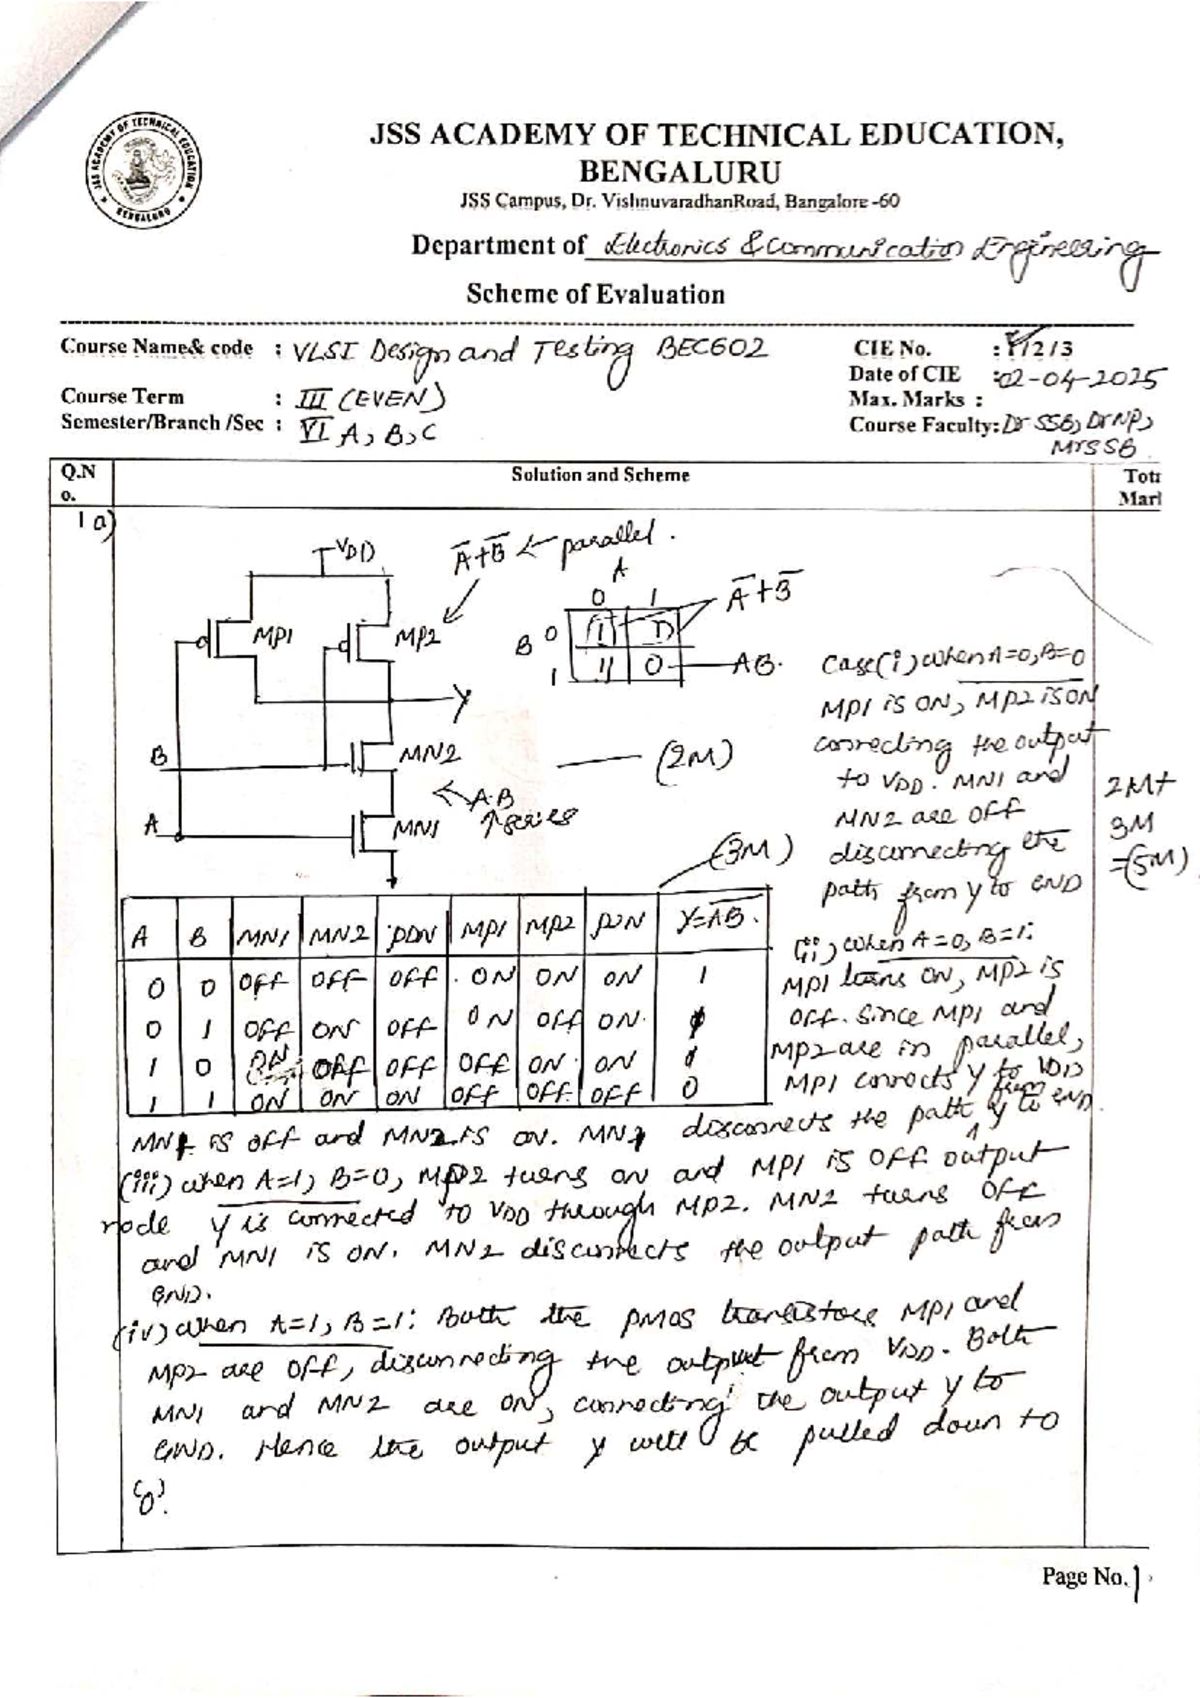 JSS ACADEMY OF TECHNICAL EDUCATION,
BENGALURU
JSS Campus, Dr. VishnuvaradhanRoad, Bangalore -60
JSS ACADEMY OF TECHNICAL EDUCATION
BENGALURU
Department of Electronics & Communication Engineering
Scheme of Evaluation
Course Name& code : VLSI Design and Testing BEC602
CIE No. : 1/2/3
Date of CIE :02-04-2025
Course Term : III (EVEN)
Max. Marks :
Semester/Branch /Sec : VI A, B, C
Course Faculty: Dr SSB, Dr NP,
Mr SSB
Q.N
o.
Solution and Scheme
Tot
Mar
1 a)
VDD
A̅+B̅ ← parallel.
MP1
MP2
A
0 1
B 0 1 1
1 1 0
A̅+B̅
AB.
Y
B
MN2
(2M)
A.B
series
A
MN1
(3M)
Case(i) when A=0, B=0
MP1 is ON, MP2 is ON
connecting the output
to VDD. MN1 and
MN2 are OFF
disconnecting the
path from Y to GND
2M+
3M
=(5M)
A B MN1 MN2 PDN MP1 MP2 PUN Y=A̅B̅.
0 0 OFF OFF OFF ON ON ON 1
0 1 OFF ON OFF ON OFF ON 1
1 0 ON OFF OFF OFF ON ON 1
1 1 ON ON ON OFF OFF OFF 0
(ii) when A=0, B=1:
MP1 turns ON, MP2 is
OFF. Since MP1 and
MP2 are in parallel,
MP1 connects Y to VDD
MN1 is OFF and MN2 is ON. MN1 disconnects the path from Y to GND.
(iii) when A=1, B=0, MP2 turns ON and MP1 is OFF output
node Y is connected to VDD through MP2. MN2 turns OFF
and MN1 is ON. MN2 disconnects the output path from
GND.
(iv) when A=1, B=1: Both the PMOS transistors MP1 and
MP2 are OFF, disconnecting the output from VDD. Both
MN1 and MN2 are ON, connecting the output Y to
GND. Hence the output Y will be pulled down to
'0'.
Page No. 1